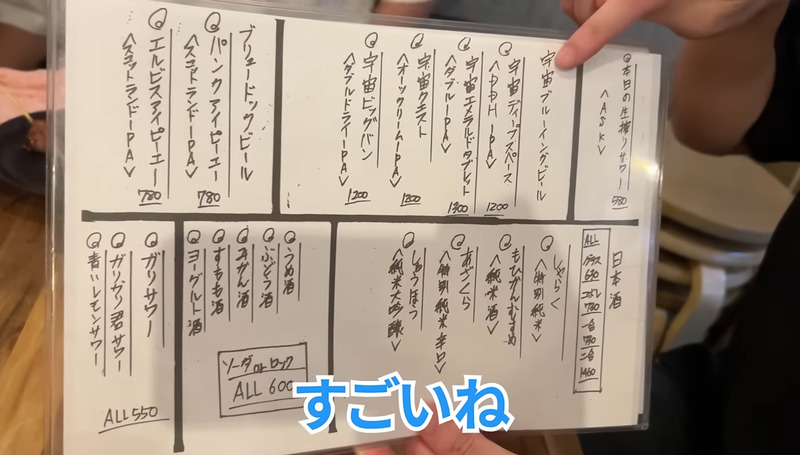 ◎本日の生搾りサワー
<ASK>
580
宇宙ブルーイングビール
宇宙ディープスペース
<DDH IPA>
1200
宇宙エメラルドタブレット
<ダブルIPA>
1300
宇宙クエスト
<オーツクリームIPA>
1200
宇宙ビッグバン
<ダブルドライIPA>
1200
ブリュードックビール
パンクアイピーエー
<スコットランドIPA>
780
エルビスアイピーエー
<スコットランドIPA>
780
日本酒
ALL
グラス
690
一合
二合
1460
しゃらく
<特別純米>
もひかんむすめ
<純米酒>
あさくら
<特別純米辛口>
<純米大吟醸>
うめ酒
ぶどう酒
みかん酒
すもも酒
ヨーグルト酒
ソーダ or ロック
ALL 600
ガリサワー
ガリガリ君サワー
青いレモンサワー
ALL 550
すごいね